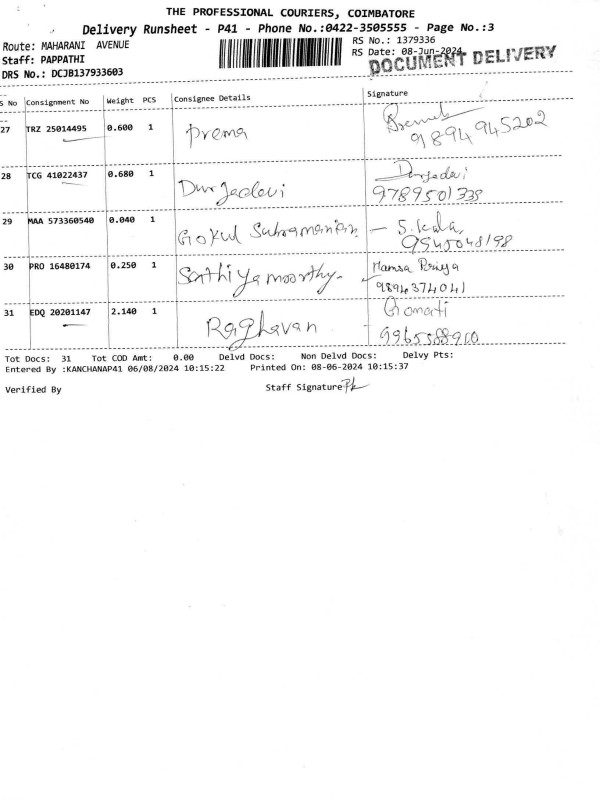 THE PROFESSIONAL COURIERS, COIMBATORE
Delivery Runsheet - P41 - Phone No.:0422-3505555 - Page No.:3
Route: MAHARANI AVENUE
RS No.: 1379336
Staff: PAPPATHI
RS Date: 08-Jun-2024
DRS No.: DCJB137933603
DOCUMENT DELIVERY
S No Consignment No Weight PCS Consignee Details Signature
27 TRZ 25014495 0.600 1 Prema
9894945202
28 TCG 41022437 0.680 1 Durgadevi Durgadevi
9789501338
29 MAA 573360540 0.040 1 Gokul Subramanian - S. Kala,
9945048198
30 PRO 16480174 0.250 1 Sathiyamoorthy - Hamsa Priya
9894374041
31 EDQ 20201147 2.140 1 Raghavan Gomati
9965588910
Tot Docs: 31 Tot COD Amt: 0.00 Delvd Docs: Non Delvd Docs: Delvy Pts:
Entered By :KANCHANAP41 06/08/2024 10:15:22 Printed On: 08-06-2024 10:15:37
Verified By Staff Signature